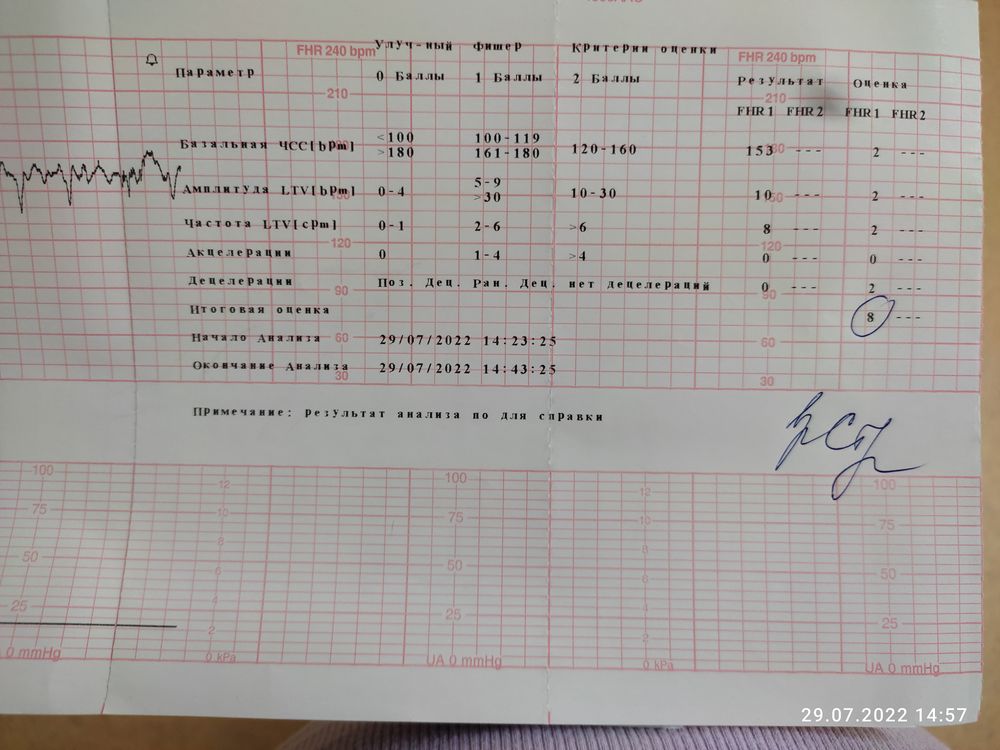 FHR 240 bpm Улуч-ный фишер Критерии оценки FHR 240 bpm
Параметр 0 Баллы 1 Баллы 2 Баллы Результат Оценка
210 210
FHR1 FHR2 FHR1 FHR2
Базальная ЧСС[bpm] <100 100-119 120-160 153 --- 2 ---
>180 161-180
Амплитуда LTV[bpm] 0-4 5-9 10-30 10 --- 2 ---
>30
150 150
Частота LTV[cpm] 0-1 2-6 >6 8 --- 2 ---
120 120
Акцелерации 0 1-4 >4 0 --- 0 ---
Децелерации Поз. Дец. Ран. Дец. нет децелераций 0 --- 2 ---
90 90
Итоговая оценка 8 ---
Начало Анализа 60 29/07/2022 14:23:25 60
Окончание Анализа 29/07/2022 14:43:25
30 30
Примечание: результат анализа по для справки
100 12 100 12 100
75 10 75 10 75
50 8 50 8 50
6 6
25 4 25 4 25
2 2
0 mmHg 0 kPa UA 0 mmHg 0 kPa UA 0 mmHg
29.07.2022 14:57